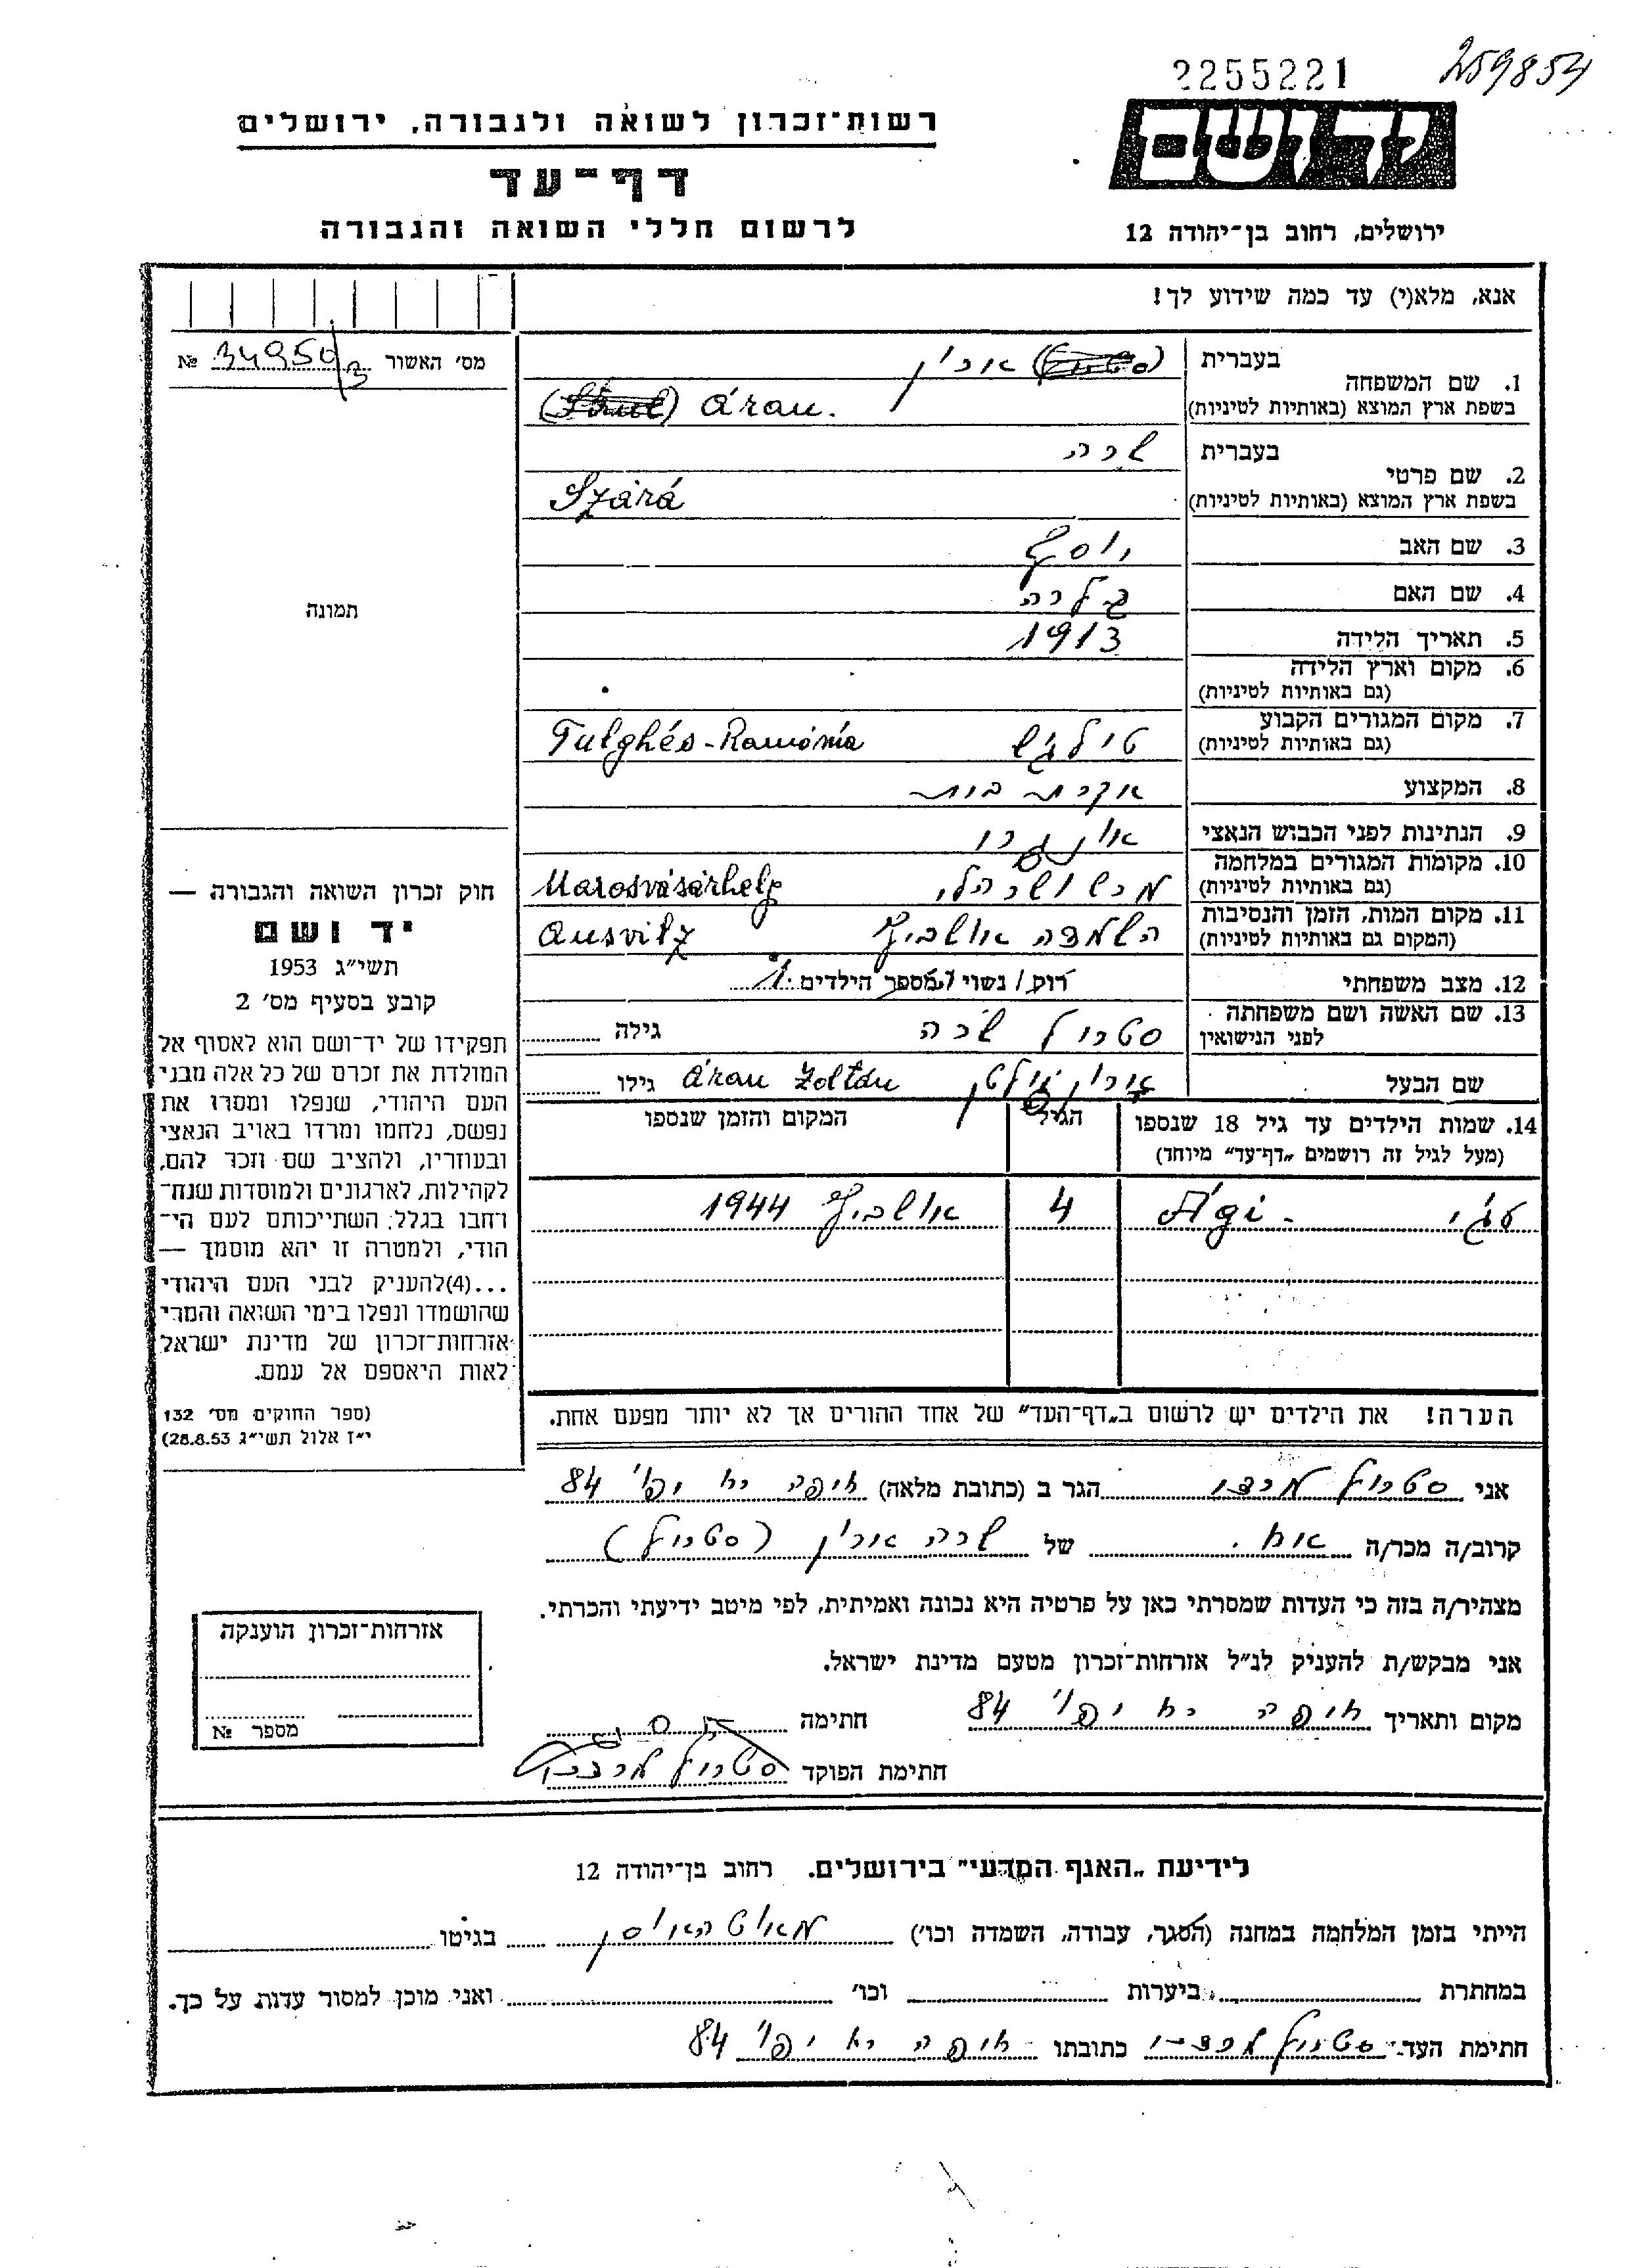 2255221
259854
יד ושם
רשות-זכרון לשואה ולגבורה, ירושלים
דף-עד
לרשום חללי השואה והגבורה
ירושלים, רחוב בן-יהודה 12
אנא, מלא(י) עד כמה שידוע לך!
מס׳ האשור 34950/3 №
1. שם המשפחה
בעברית ארון
בשפת ארץ המוצא (באותיות לטיניות) Áron.
2. שם פרטי
בעברית שרה
בשפת ארץ המוצא (באותיות לטיניות) Szárá
3. שם האב יוסף
4. שם האם
5. תאריך הלידה 1913
6. מקום וארץ הלידה
(גם באותיות לטיניות)
7. מקום המגורים הקבוע טילגש Tulghés-Románia
(גם באותיות לטיניות)
8. המקצוע עקרת בית
9. הנתינות לפני הכבוש הנאצי
10. מקומות המגורים במלחמה
(גם באותיות לטיניות) Marosvásárhely
11. מקום המות, הזמן והנסיבות
(המקום גם באותיות לטיניות) השמדה אושביץ Ausvitz
12. מצב משפחתי רווק / נשוי / מספר הילדים 1
13. שם האשה ושם משפחתה
לפני הנישואין סטרול שרה גילה
שם הבעל ארון זולטן Áron Zoltán גילו
14. שמות הילדים עד גיל 18 שנספו
(מעל לגיל זה רושמים „דף-עד” מיוחד)
הגיל
המקום והזמן שנספו
Ági 4 אושביץ 1944
הערה! את הילדים יש לרשום ב„דף-העד” של אחד ההורים אך לא יותר מפעם אחת.
תמונה
חוק זכרון השואה והגבורה —
יד ושם
תשי״ג 1953
קובע בסעיף מס׳ 2
תפקידו של יד-ושם הוא לאסוף אל
המולדת את זכרם של כל אלה מבני
העם היהודי, שנפלו ומסרו את
נפשם, נלחמו ומרדו באויב הנאצי
ובעוזריו, ולהציב שם וזכר להם,
לקהילות, לארגונים ולמוסדות שנח-
רבו בגלל השתייכותם לעם הי-
הודי, ולמטרה זו יהא מוסמך —
...(4)להעניק לבני העם היהודי
שהושמדו ונפלו בימי השואה והמרי
אזרחות-זכרון של מדינת ישראל
לאות היאספם אל עמם.
(ספר החוקים מס׳ 132
י״ז אלול תשי״ג 28.8.53)
אני סטרול הגר ב (כתובת מלאה) חיפה רח יפו 84
קרוב/ה מכר/ה אח. של שרה ארון (סטרול)
מצהיר/ה בזה כי העדות שמסרתי כאן על פרטיה היא נכונה ואמיתית, לפי מיטב ידיעתי והכרתי.
אני מבקש/ת להעניק לנ״ל אזרחות-זכרון מטעם מדינת ישראל.
מקום ותאריך חיפה רח יפו 84 חתימה
חתימת הפוקד סטרול
אזרחות-זכרון הוענקה
מספר №
לידיעת „האגף המדעי” בירושלים. רחוב בן-יהודה 12
הייתי בזמן המלחמה במחנה (הסגר, עבודה, השמדה וכו׳) מאוטהאוסן בגיטו
במחתרת ביערות וכו׳ ואני מוכן למסור עדות על כך.
חתימת העד סטרול כתובתו חיפה רח יפו 84